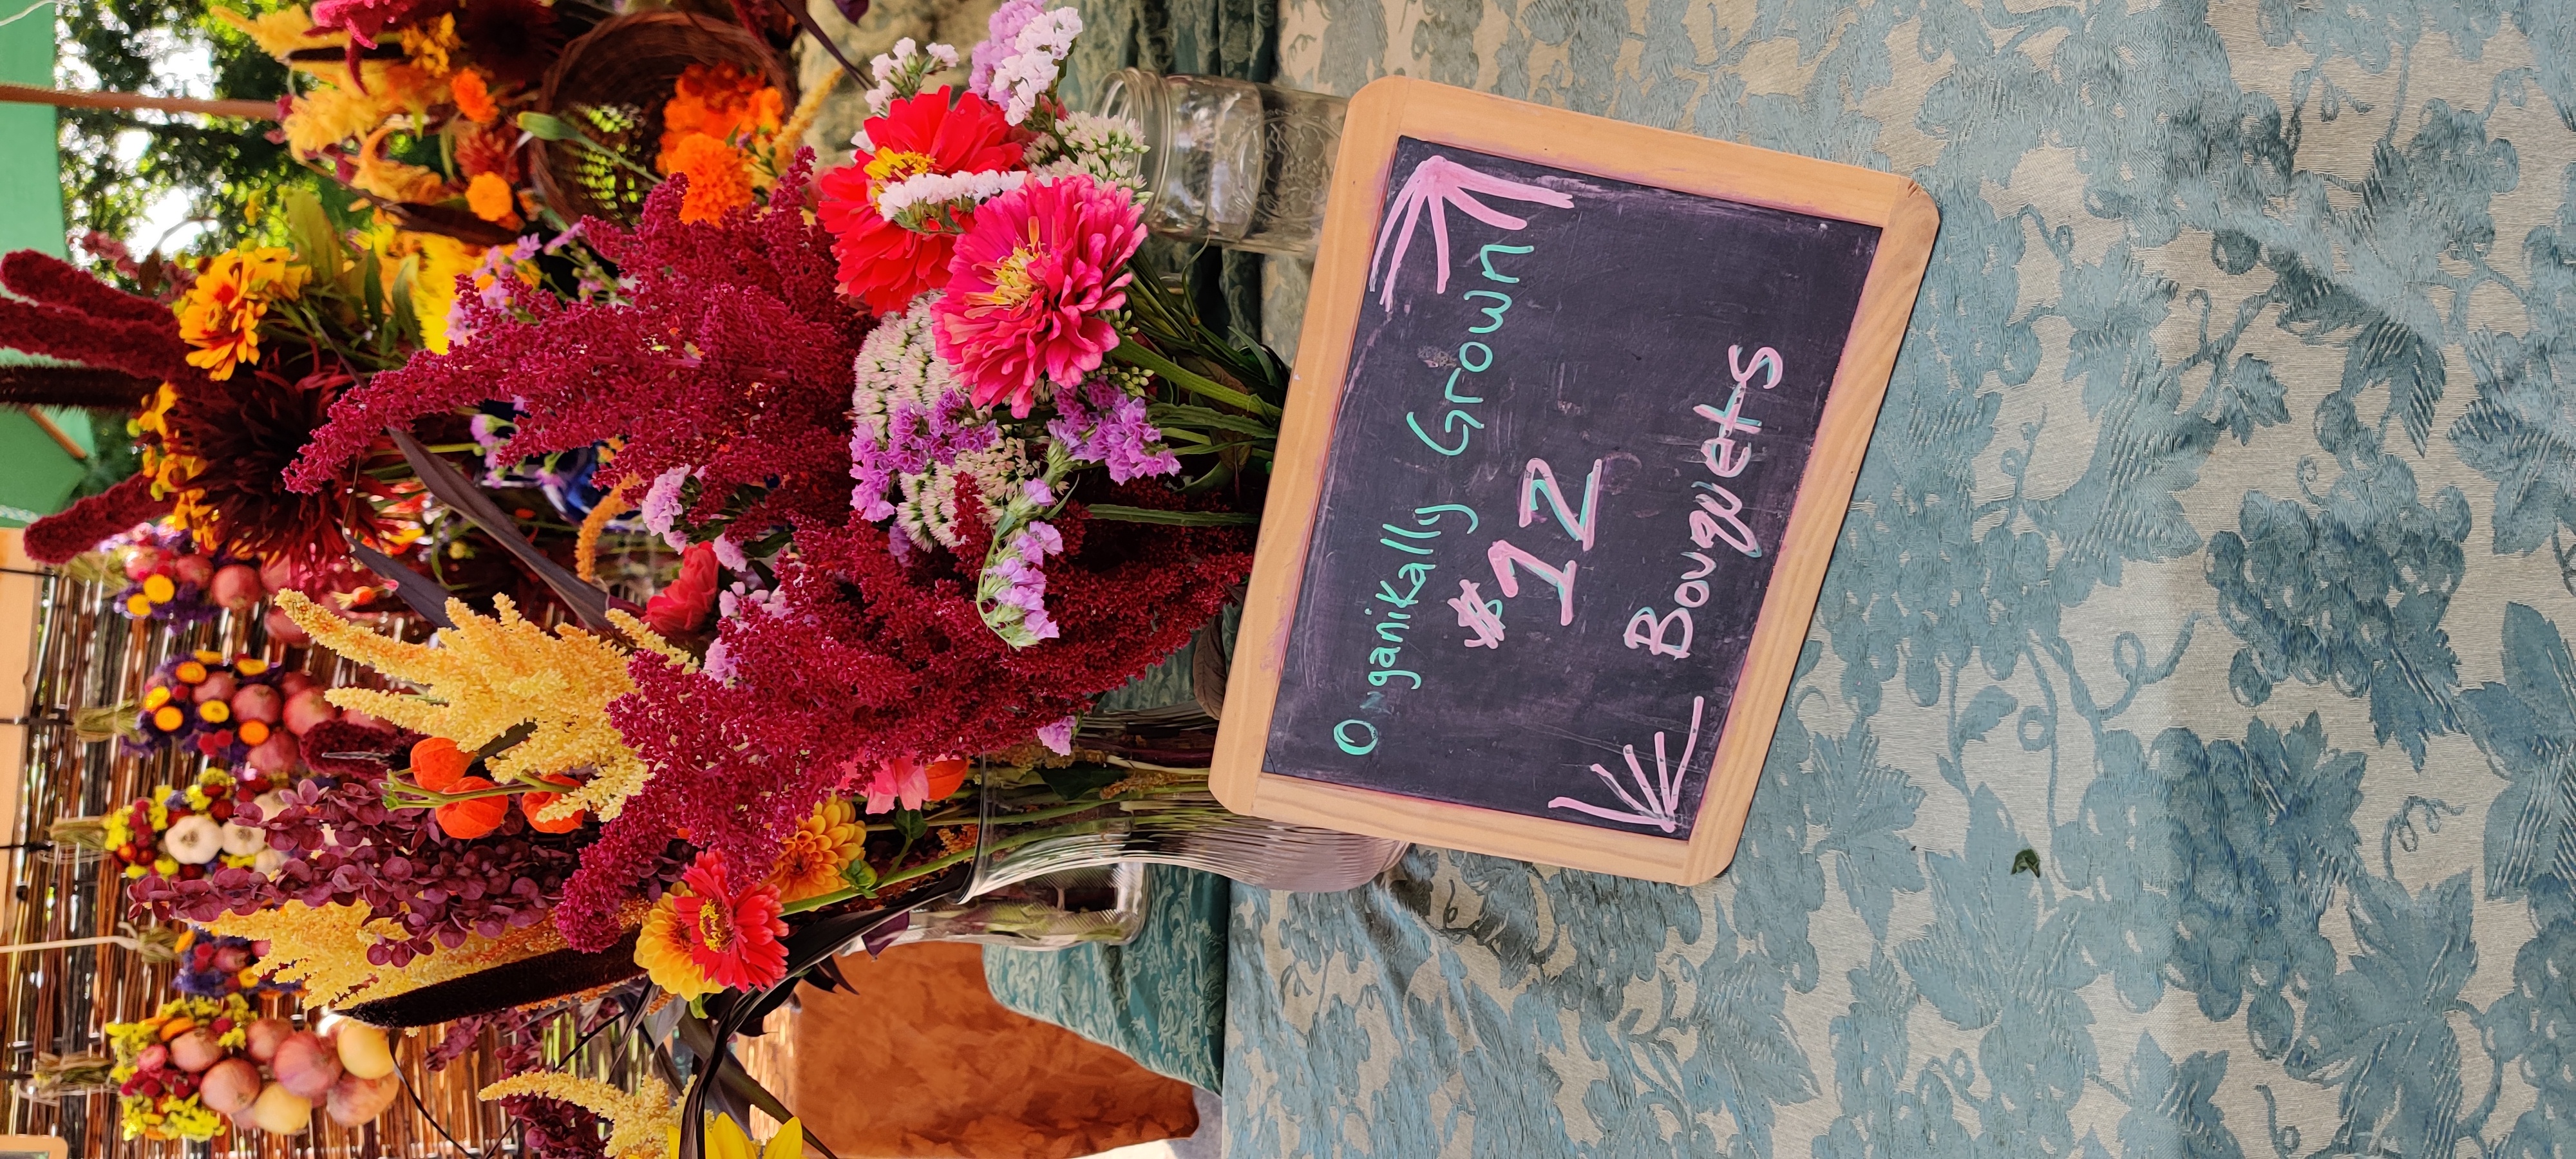 Organikally Grown
$12
Bouquets